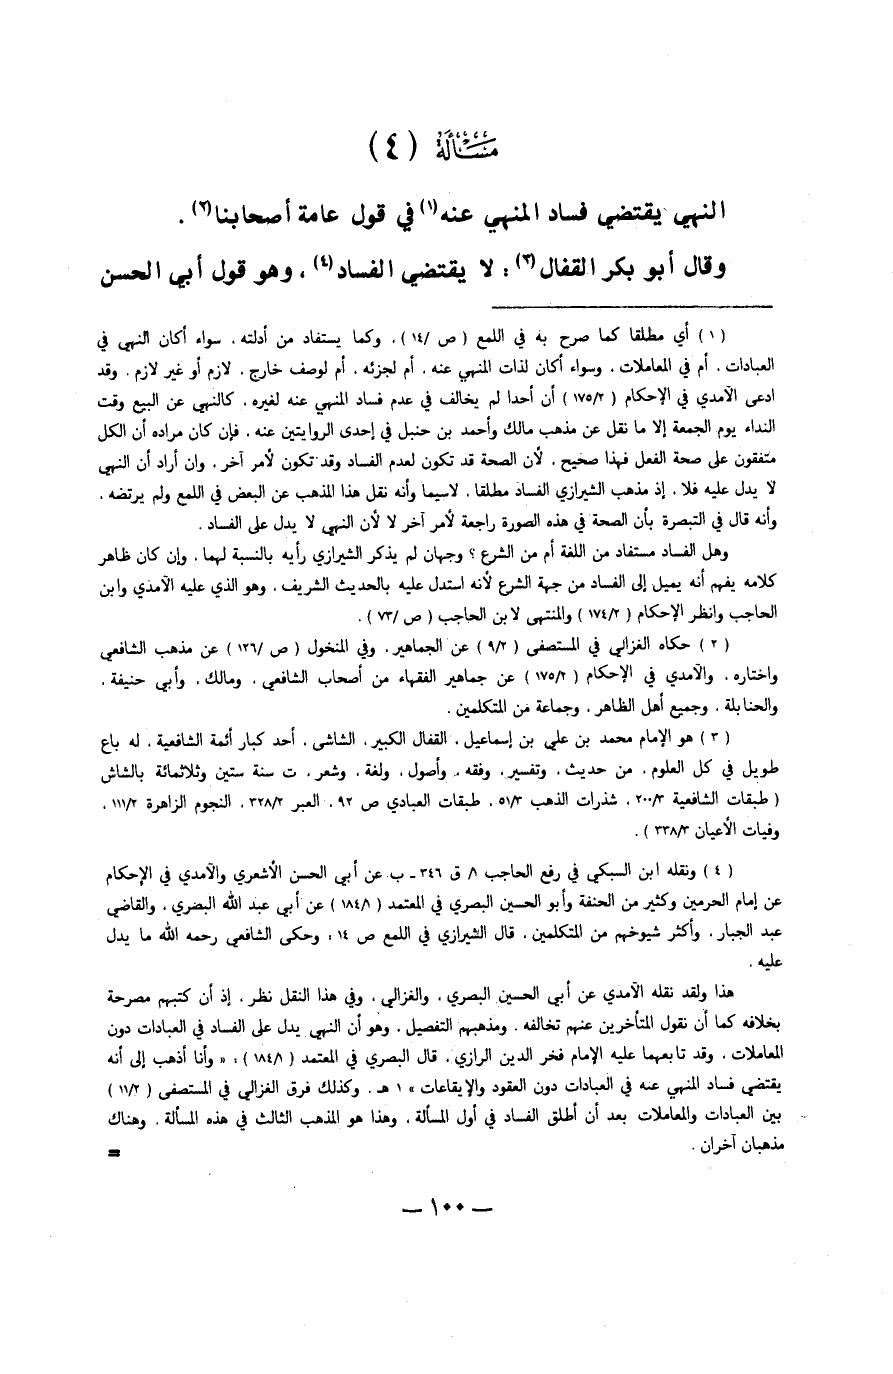 مسألة (٤)
النهي يقتضي فساد المنهي عنه(١) في قول عامة أصحابنا(٢) .
وقال أبو بكر القفال(٣) : لا يقتضي الفساد(٤) ، وهو قول أبي الحسن
(١) أي مطلقا كما صرح به في اللمع (ص /١٤) ، وكما يستفاد من أدلته ، سواء أكان النهي في
العبادات ، أم في المعاملات ، وسواء أكان لذات المنهي عنه ، أم لجزئه ، أم لوصف خارج ، لازم أو غير لازم . وقد
ادعى الآمدي في الإحكام (١٧٥/٢) أن أحدا لم يخالف في عدم فساد المنهي عنه لغيره ، كالنهي عن البيع وقت
النداء يوم الجمعة إلا ما نقل عن مذهب مالك وأحمد بن حنبل في إحدى الروايتين عنه . فإن كان مراده أن الكل
متفقون على صحة الفعل فهذا صحيح ، لأن الصحة قد تكون لعدم الفساد وقد تكون لأمر آخر . وان أراد أن النهي
لا يدل عليه فلا ، إذ مذهب الشيرازي الفساد مطلقا ، لاسيما وأنه نقل هذا المذهب عن البعض في اللمع ولم يرتضه ،
وأنه قال في التبصرة بأن الصحة في هذه الصورة راجعة لأمر آخر لا لأن النهي لا يدل على الفساد .
وهل الفساد مستفاد من اللغة أم من الشرع ؟ وجهان لم يذكر الشيرازي رأيه بالنسبة لهما ، وإن كان ظاهر
كلامه يفهم أنه يميل إلى الفساد من جهة الشرع لأنه استدل عليه بالحديث الشريف ، وهو الذي عليه الآمدي وابن
الحاجب وانظر الإحكام (١٧٤/٢) والمنتهى لابن الحاجب (ص /٧٣) .
(٢) حكاه الغزالي في المستصفى (٩/٢) عن الجماهير ، وفي المنخول (ص /١٢٦) عن مذهب الشافعي
واختاره ، والآمدي في الإحكام (١٧٥/٢) عن جماهير الفقهاء من أصحاب الشافعي ، ومالك ، وأبي حنيفة ،
والحنابلة ، وجميع أهل الظاهر ، وجماعة من المتكلمين .
(٣) هو الإمام محمد بن علي بن إسماعيل ، القفال الكبير ، الشاشي ، أحد كبار أئمة الشافعية ، له باع
طويل في كل العلوم ، من حديث ، وتفسير ، وفقه ، وأصول ، ولغة ، وشعر ، ت سنة ستين وثلاثمائة بالشاش
(طبقات الشافعية ٢٠٠/٣ ، شذرات الذهب ٥١/٣ ، طبقات العبادي ص ٩٢ ، العبر ٣٢٨/٢ ، النجوم الزاهرة ١١١/٢ ،
وفيات الأعيان ٣٣٨/٣) .
(٤) ونقله ابن السبكي في رفع الحاجب ١/ ق ٣٤٦ ـ ب عن أبي الحسن الأشعري والآمدي في الإحكام
عن إمام الحرمين وكثير من الحنفة وأبو الحسين البصري في المعتمد (١٨٤/١) عن أبي عبد الله البصري ، والقاضي
عبد الجبار ، وأكثر شيوخهم من المتكلمين ، قال الشيرازي في اللمع ص ١٤ : وحكى الشافعي رحمه الله ما يدل
عليه .
هذا ولقد نقله الآمدي عن أبي الحسين البصري ، والغزالي ، وفي هذا النقل نظر ، إذ أن كتبهم مصرحة
بخلافه كما أن نقول المتأخرين عنهم تخالفه ، ومذهبهم التفصيل ، وهو أن النهي يدل على الفساد في العبادات دون
المعاملات ، وقد تابعهما عليه الإمام فخر الدين الرازي ، قال البصري في المعتمد (١٨٤/١) : « وأنا أذهب إلى أنه
يقتضي فساد المنهي عنه في العبادات دون العقود والإيقاعات » ١ هـ . وكذلك فرق الغزالي في المستصفى (١١/٢)
بين العبادات والمعاملات بعد أن أطلق الفساد في أول المسألة ، وهذا هو المذهب الثالث في هذه المسألة . وهناك
مذهبان آخران . =
— ١٠٠ —